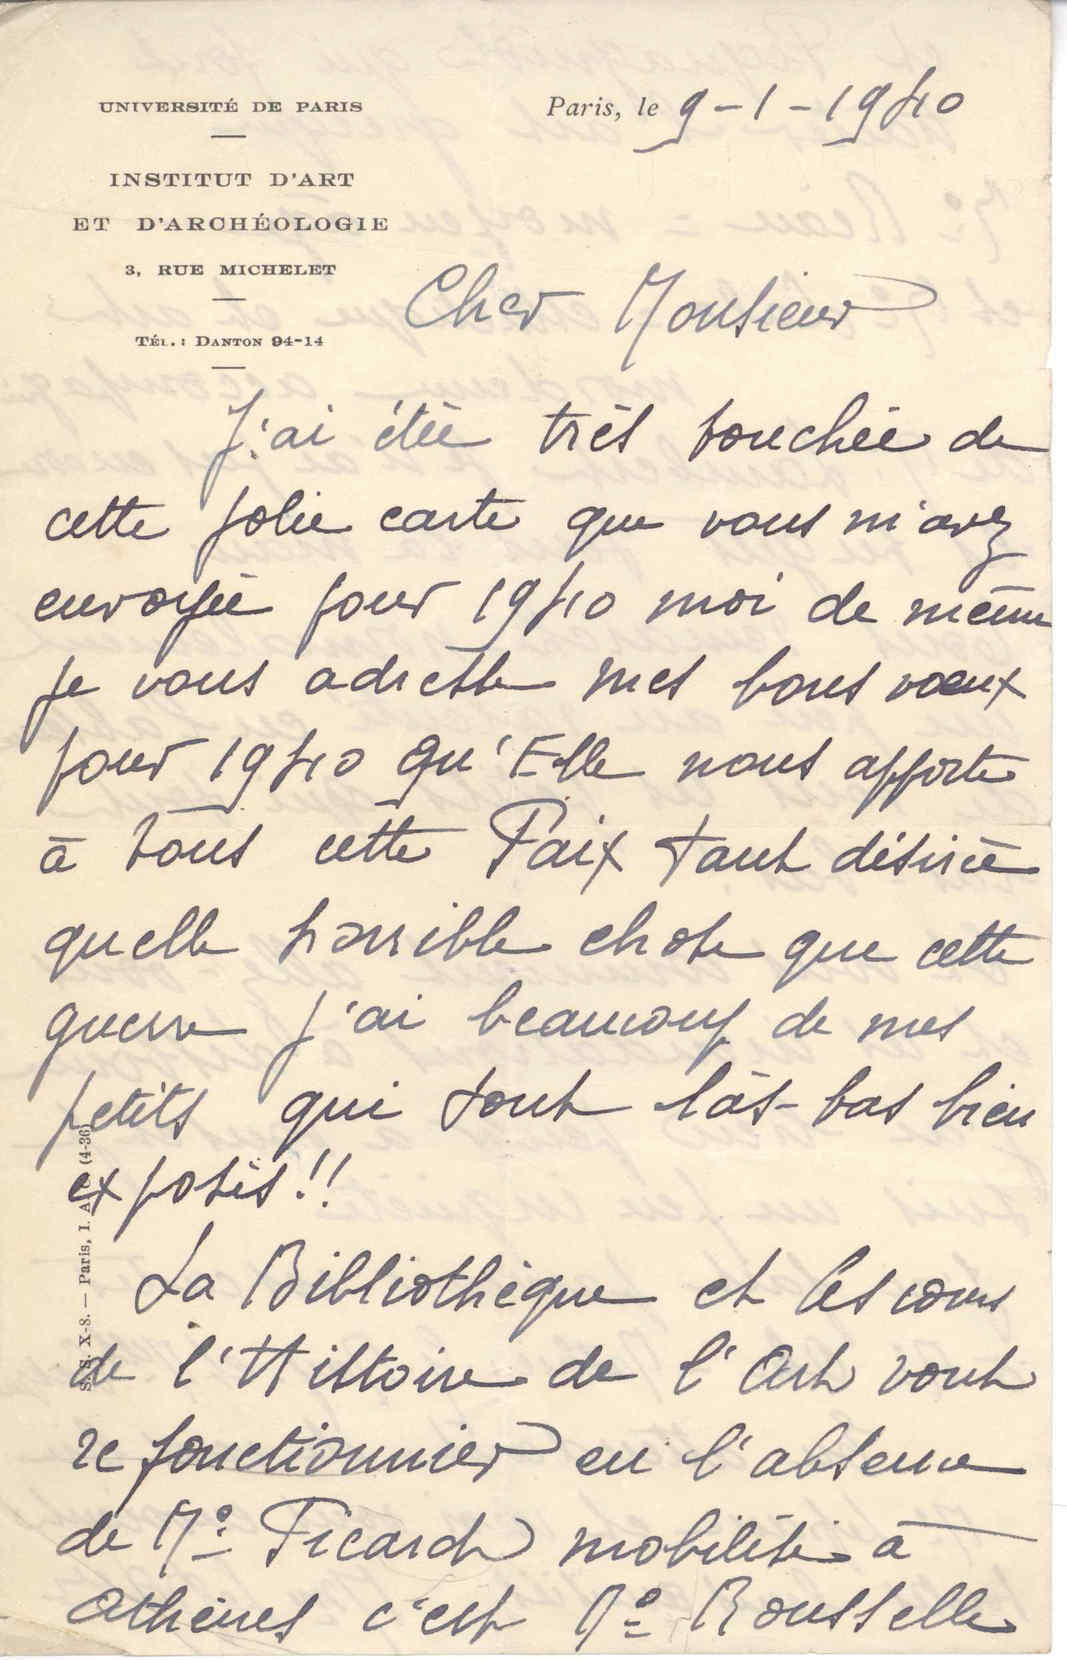 UNIVERSITÉ DE PARIS
INSTITUT D'ART
ET D'ARCHÉOLOGIE
3, RUE MICHELET
TÉL.: DANTON 94-14
Paris, le 9-1-1940
Cher Monsieur
J'ai étée très touchée de
cette jolie carte que vous m'avez
envoyée pour 1940 moi de même
je vous adresse mes bons vœux
pour 1940 Qu'Elle nous apporte
à tous cette Paix tant désirée
quelle horrible chose que cette
guerre j'ai beaucoup de mes
petits qui sont làs-bas bien
exposés!!
La Bibliothèque et les cours
de l'Histoire de l'Art vont
refonctionnier en l'absence
de Mr Picard mobilisé à
Athènes c'est Mr Rousselle
Paris, I. A. (4-36)